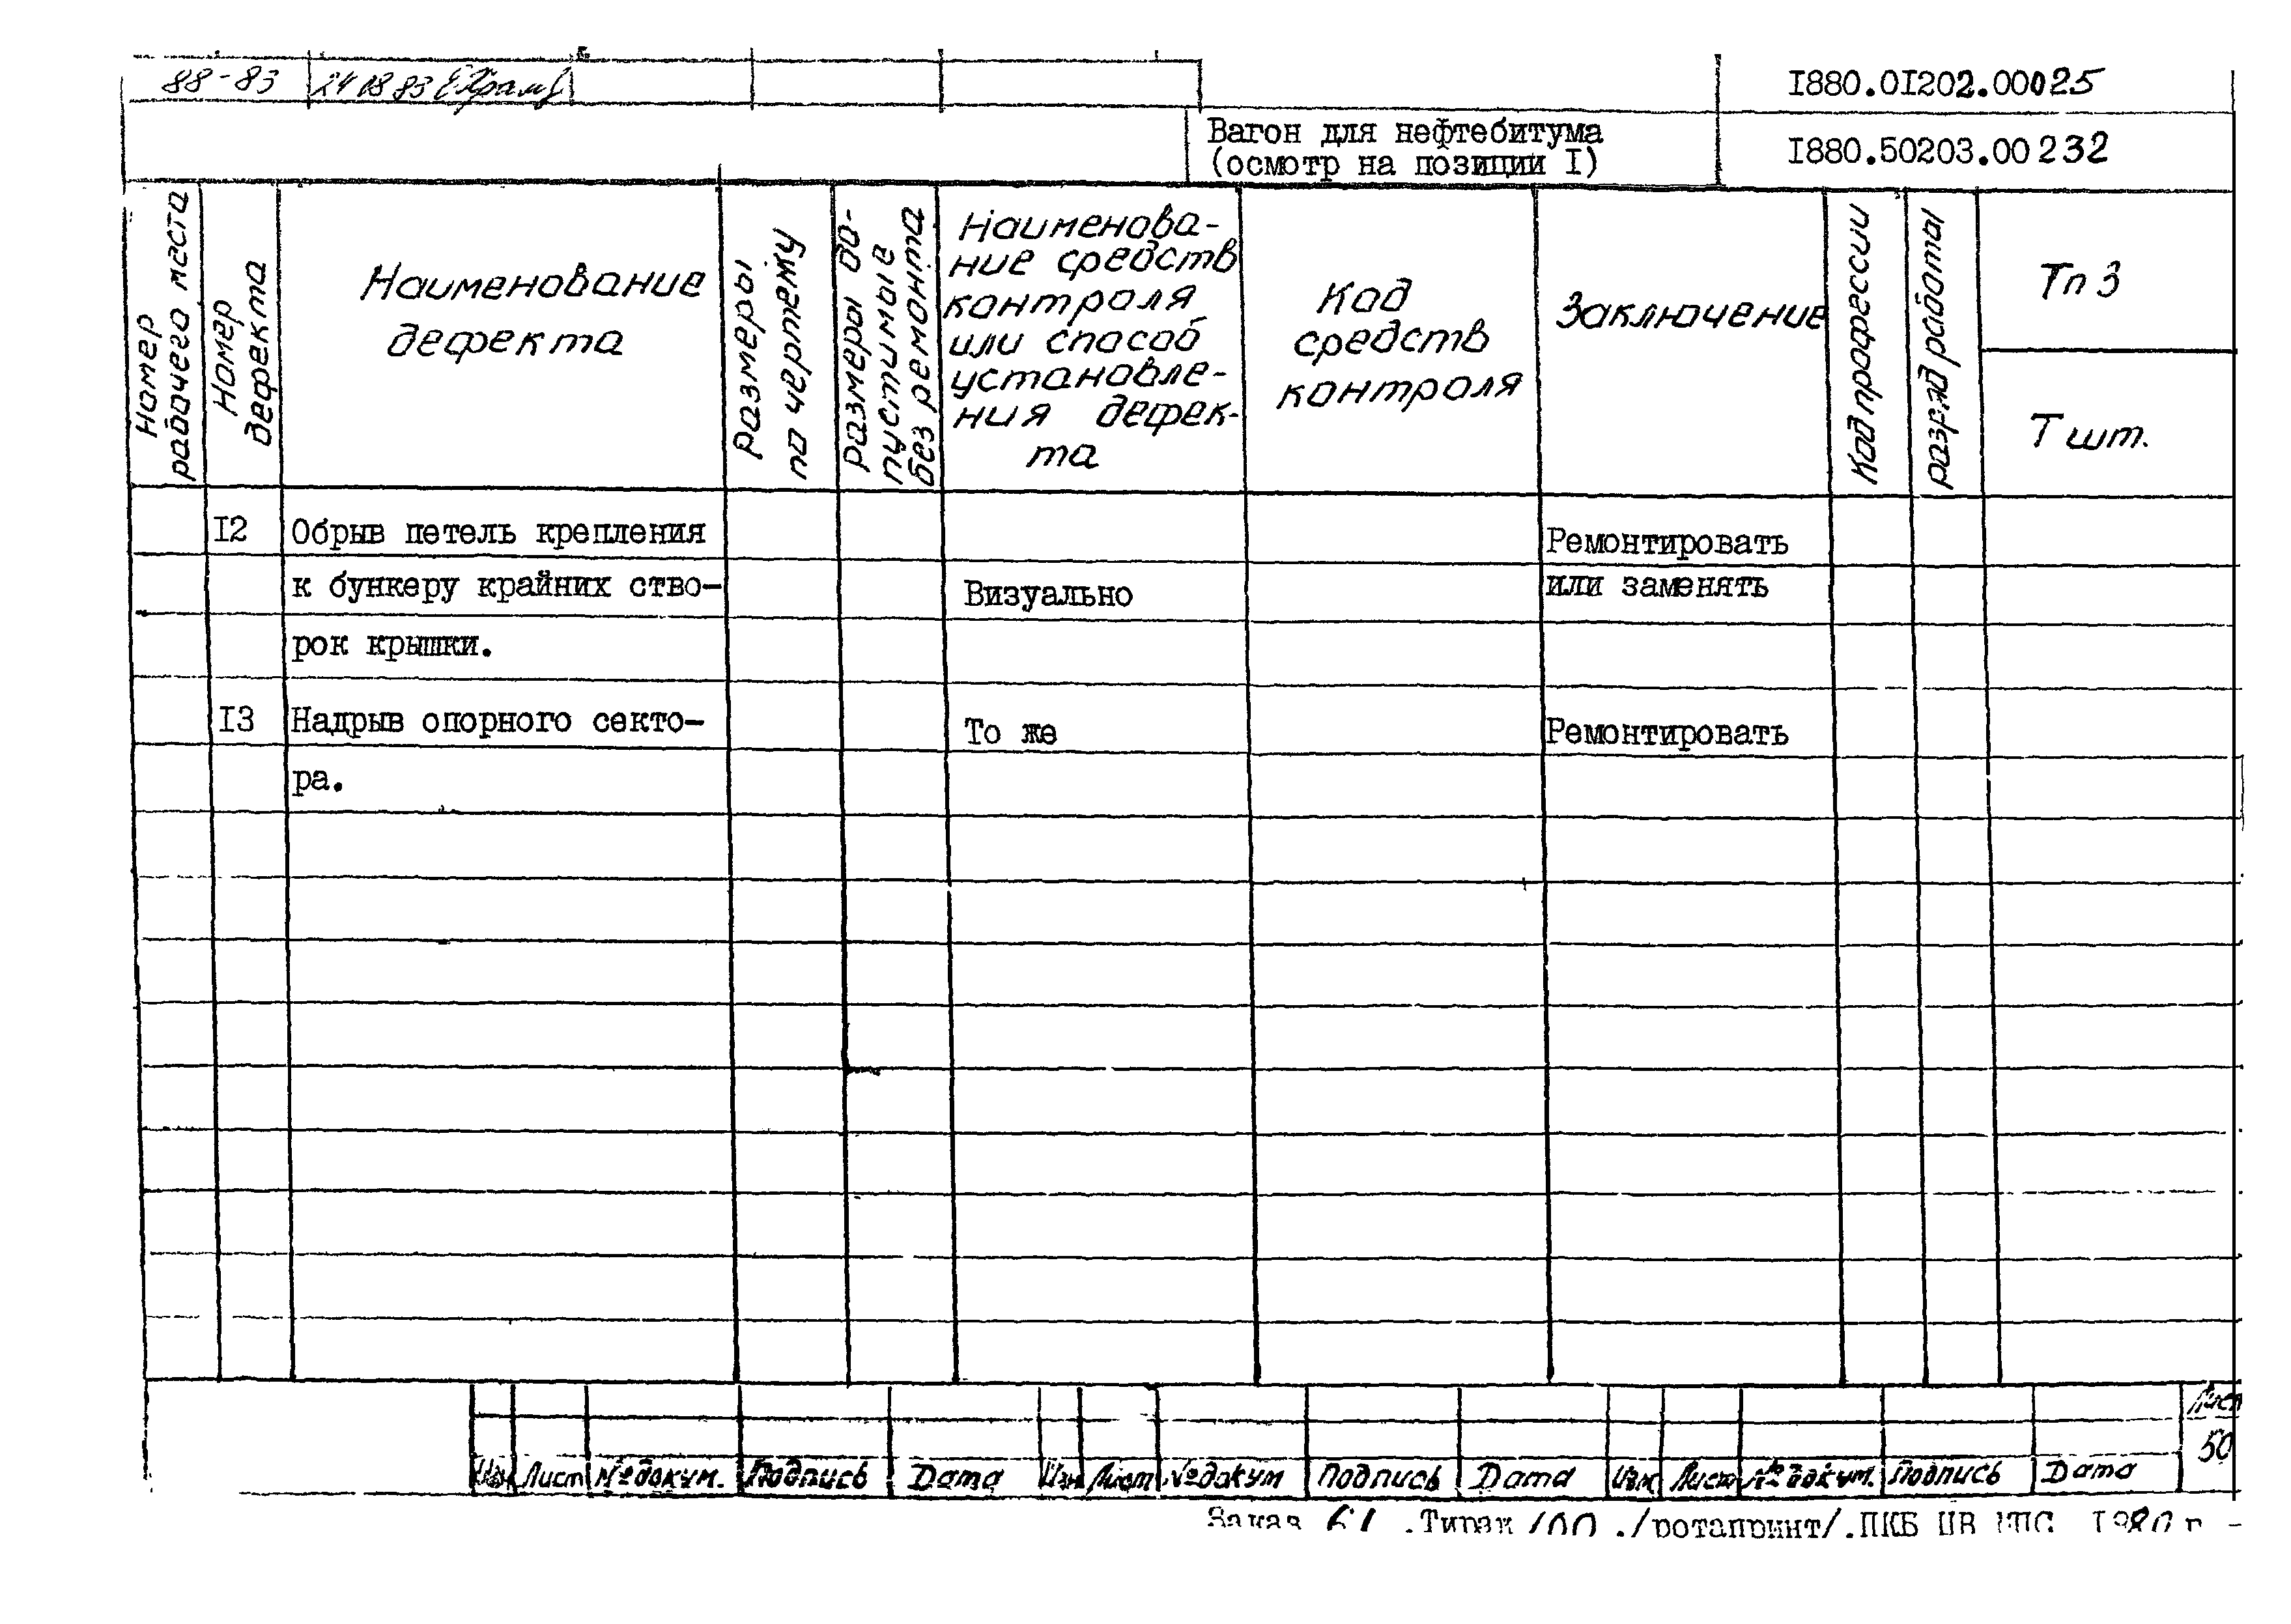 88-83 24 08 83
1880.01202.00025
Вагон для нефтебитума
(осмотр на позиции I)
1880.50203.00232
Номер
рабочего места
Номер
дефекта
Наименование
дефекта
Размеры
по чертежу
Размеры до-
пустимые
без ремонта
Наименова-
ние средств
контроля
или способ
установле-
ния дефек-
та
Код
средств
контроля
Заключение
Код профессии
разряд работы
Тп З
Т шт.
I2 Обрыв петель крепления
к бункеру крайних ство-
рок крышки.
Визуально
Ремонтировать
или заменять
I3 Надрыв опорного секто-
ра.
То же
Ремонтировать
Изм Лист №докум. Подпись Дата Изм Лист №докум Подпись Дата Изм Лист №докум. Подпись Дата
Лист
50
Заказ 61 .Тираж 100 ./ротапринт/.ПКБ ЦВ МПС I980 г.